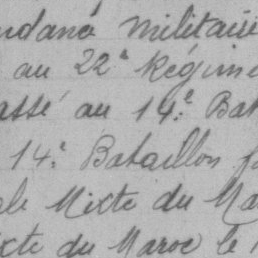 militaire
au 22e Régim
assé au 14e Bat
14e Bataillon
le Mixte du Ma
ixte du Maroc le